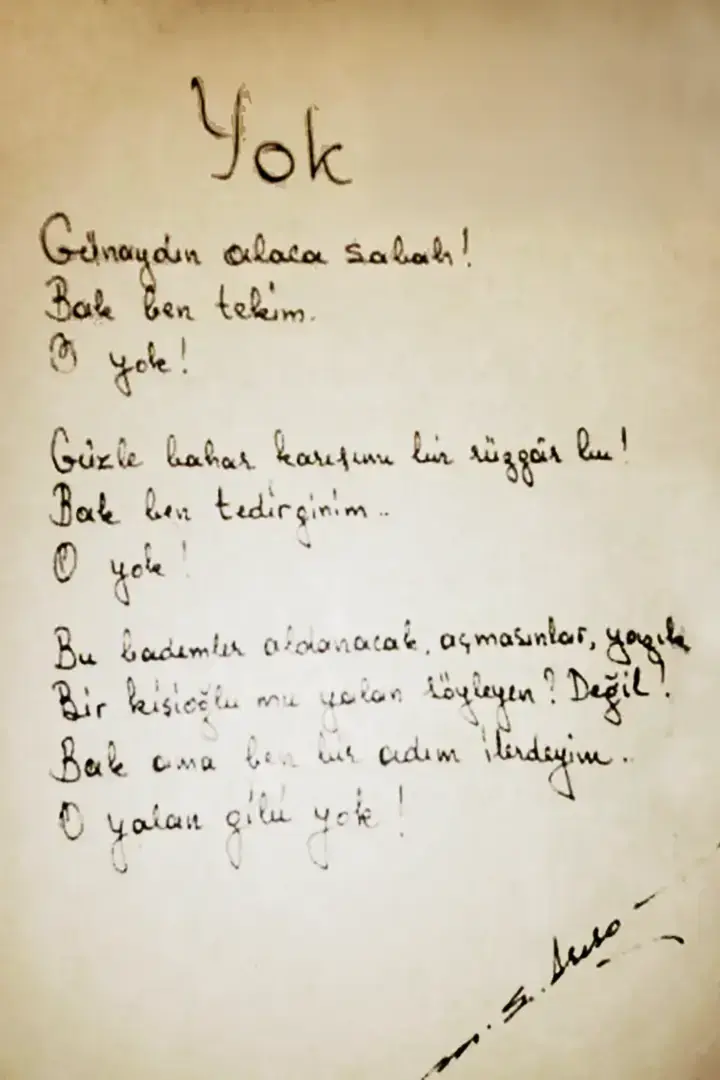 Yok
Günaydın alaca sabah!
Bak ben tekim.
O yok!
Güzle bahar karışımı bir rüzgâr bu!
Bak ben tedirginim..
O yok!
Bu bademler aldanacak, açmasınlar, yazık
Bir kişioğlu mu yalan söyleyen? Değil!
Bak ama ben bir adım ilerdeyim..
O yalan gibi yok!
S.